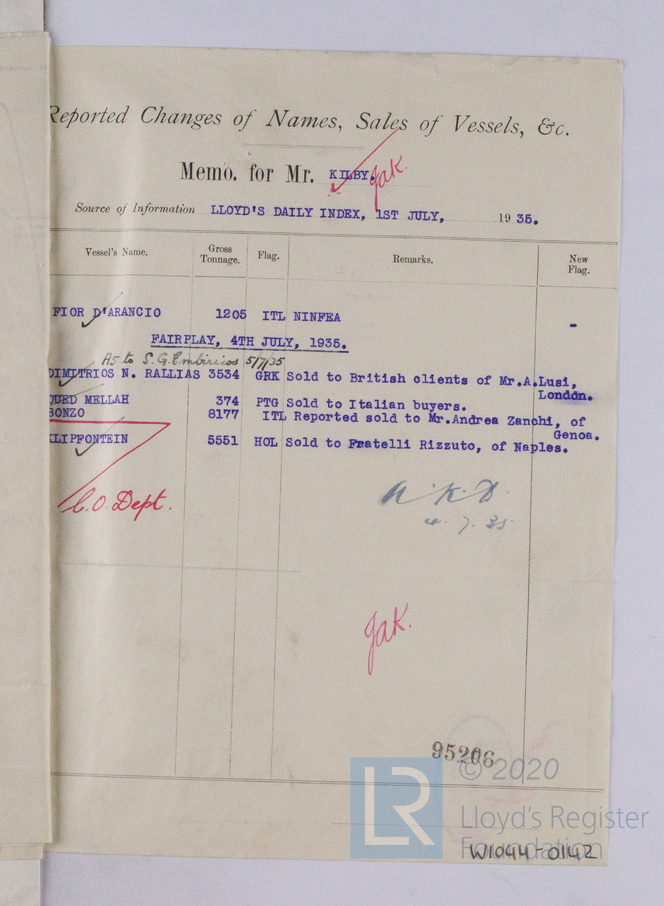 Reported Changes of Names, Sales of Vessels, &c.
Memo. for Mr. KILBY.
Jak.
Source of Information LLOYD'S DAILY INDEX, 1ST JULY, 1935.
Vessel's Name. Gross Tonnage. Flag. Remarks. New Flag.
FIOR D'ARANCIO 1205 ITL NINFEA -
FAIRPLAY, 4TH JULY, 1935.
As to S.G. Embiricos 5/7/35
DIMITRIOS N. RALLIAS 3534 GRK Sold to British clients of Mr.A.Lusi,
London.
OUED MELLAH 374 PTG Sold to Italian buyers.
BONZO 8177 ITL Reported sold to Mr.Andrea Zanchi, of
Genoa.
KLIPFONTEIN 5551 HOL Sold to Fratelli Rizzuto, of Naples.
C.O. Dept.
A.K.D.
4.7.35
Jak.
95206
© 2020
LR
Lloyd's Register
Foundation
W1044-0142